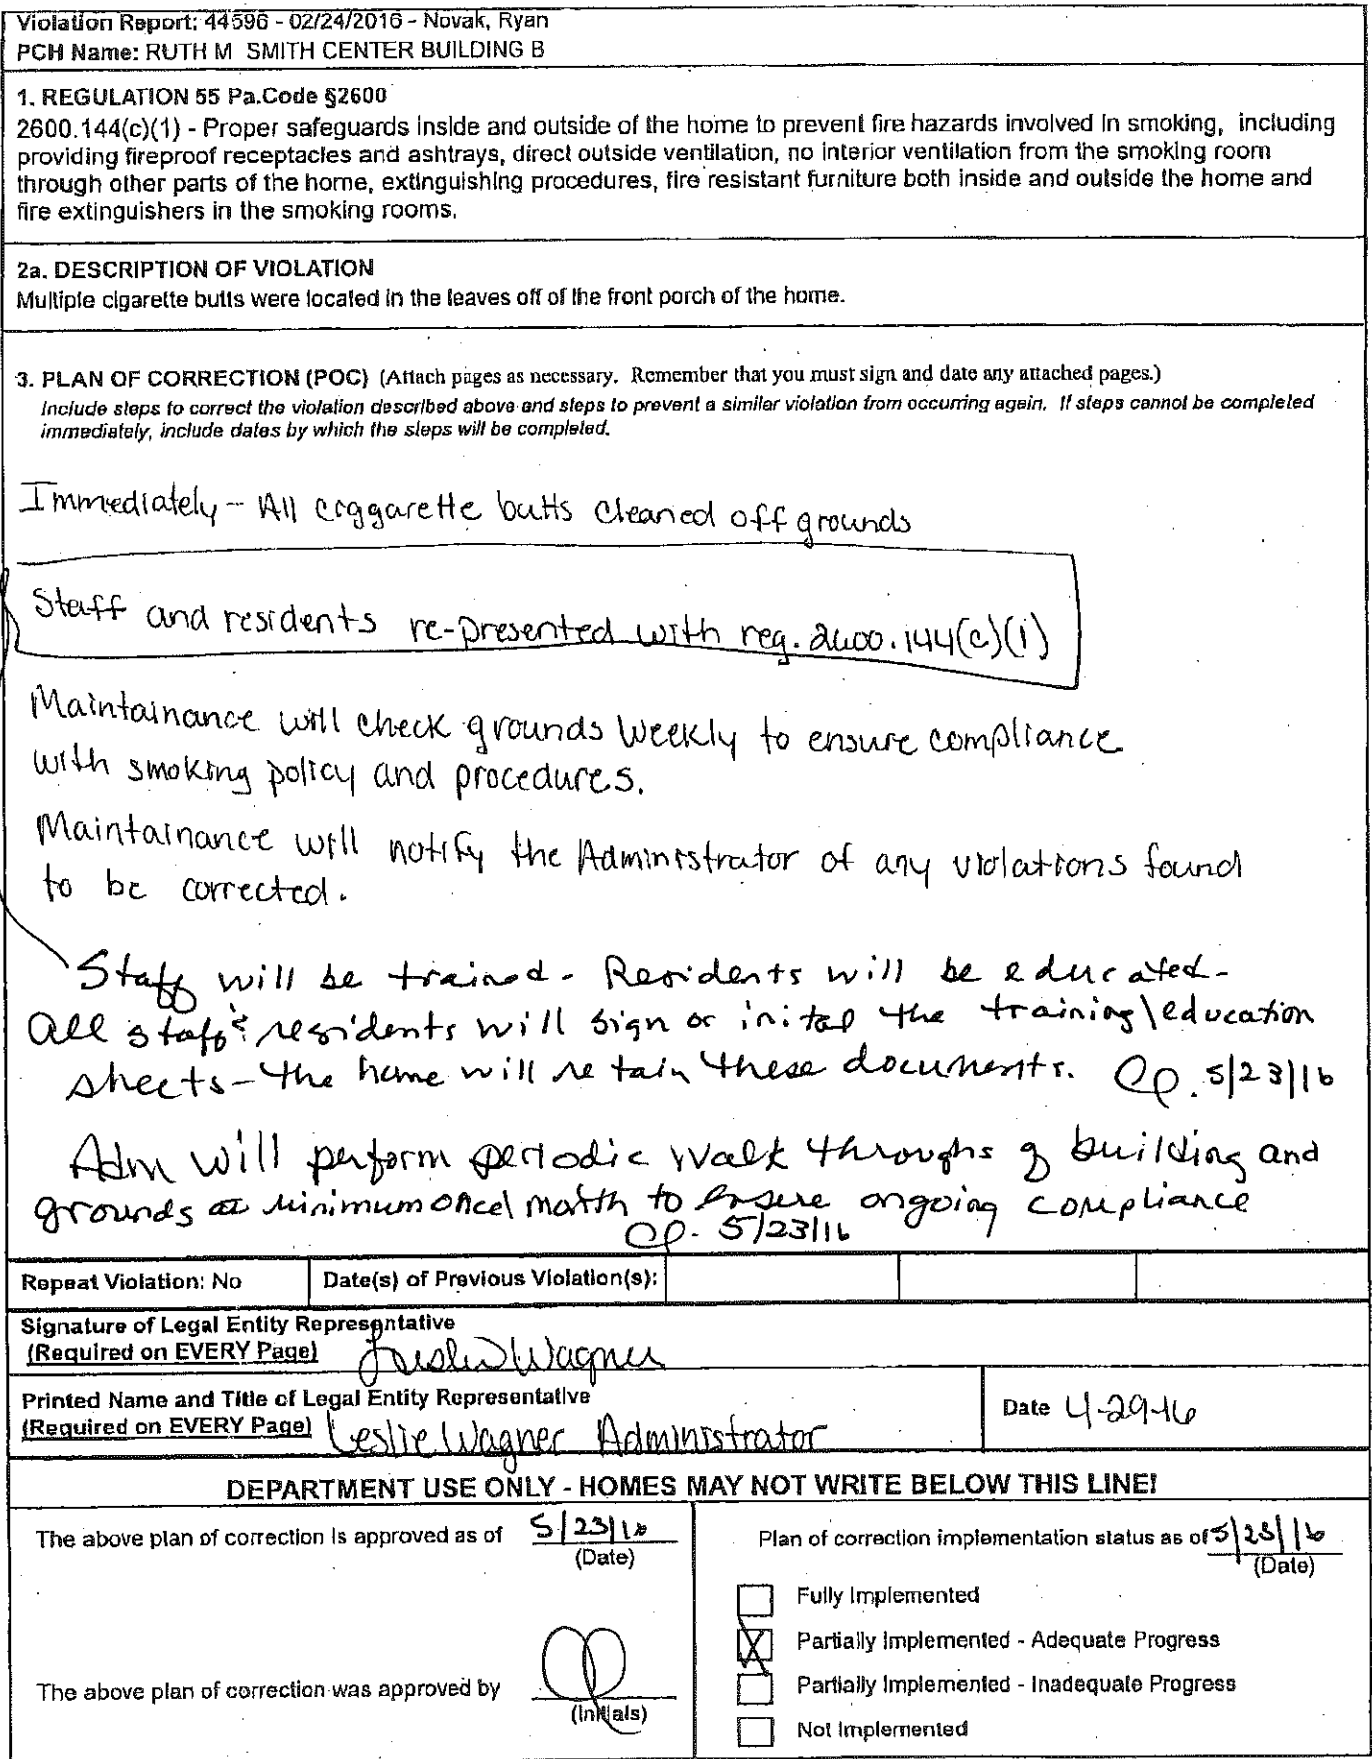 Violation Report: 44596 - 02/24/2016 - Novak, Ryan
PCH Name: RUTH M SMITH CENTER BUILDING B
1. REGULATION 55 Pa.Code §2600
2600.144(c)(1) - Proper safeguards inside and outside of the home to prevent fire hazards involved in smoking, including
providing fireproof receptacles and ashtrays, direct outside ventilation, no interior ventilation from the smoking room
through other parts of the home, extinguishing procedures, fire resistant furniture both inside and outside the home and
fire extinguishers in the smoking rooms.
2a. DESCRIPTION OF VIOLATION
Multiple cigarette butts were located in the leaves off of the front porch of the home.
3. PLAN OF CORRECTION (POC) (Attach pages as necessary. Remember that you must sign and date any attached pages.)
Include steps to correct the violation described above and steps to prevent a similar violation from occurring again. If steps cannot be completed
immediately, include dates by which the steps will be completed.
Immediately - All ciggarette butts cleaned off grounds
Staff and residents re-presented with reg. 2600.144(c)(1)
Maintainance will check grounds weekly to ensure compliance
with smoking policy and procedures.
Maintainance will notify the Administrator of any violations found
to be corrected.
Staff will be trained - Residents will be educated -
All staff & residents will sign or inital the training\education
sheets - the home will retain these documents. 5/23/16
Adm will perform periodic walk throughs of building and
grounds at minimum once/ month to ensure ongoing compliance
5/23/16
Repeat Violation: No Date(s) of Previous Violation(s):
Signature of Legal Entity Representative
(Required on EVERY Page) Leslie Wagner
Printed Name and Title of Legal Entity Representative
(Required on EVERY Page) Leslie Wagner Administrator
Date 4-29-16
DEPARTMENT USE ONLY - HOMES MAY NOT WRITE BELOW THIS LINE!
The above plan of correction is approved as of 5/23/16
(Date)
The above plan of correction was approved by
(Initials)
Plan of correction implementation status as of 5/23/16
(Date)
Fully Implemented
Partially Implemented - Adequate Progress
Partially Implemented - Inadequate Progress
Not Implemented